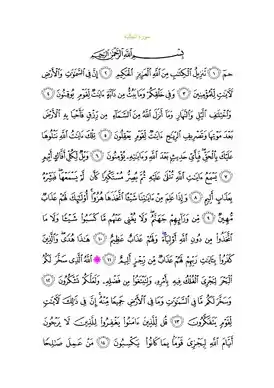 سورة الجاثية
بِسْمِ اللَّهِ الرَّحْمَٰنِ الرَّحِيمِ
حمٓ ۝١ تَنزِيلُ ٱلْكِتَٰبِ مِنَ ٱللَّهِ ٱلْعَزِيزِ ٱلْحَكِيمِ ۝٢ إِنَّ فِى ٱلسَّمَٰوَٰتِ وَٱلْأَرْضِ
لَءَايَٰتٍ لِّلْمُؤْمِنِينَ ۝٣ وَفِى خَلْقِكُمْ وَمَا يَبُثُّ مِن دَآبَّةٍ ءَايَٰتٌ لِّقَوْمٍ يُوقِنُونَ ۝٤
وَٱخْتِلَٰفِ ٱلَّيْلِ وَٱلنَّهَارِ وَمَآ أَنزَلَ ٱللَّهُ مِنَ ٱلسَّمَآءِ مِن رِّزْقٍ فَأَحْيَا بِهِ ٱلْأَرْضَ
بَعْدَ مَوْتِهَا وَتَصْرِيفِ ٱلرِّيَٰحِ ءَايَٰتٌ لِّقَوْمٍ يَعْقِلُونَ ۝٥ تِلْكَ ءَايَٰتُ ٱللَّهِ نَتْلُوهَا
عَلَيْكَ بِٱلْحَقِّ فَبِأَىِّ حَدِيثٍۭ بَعْدَ ٱللَّهِ وَءَايَٰتِهِۦ يُؤْمِنُونَ ۝٦ وَيْلٌ لِّكُلِّ أَفَّاكٍ أَثِيمٍ
۝٧ يَسْمَعُ ءَايَٰتِ ٱللَّهِ تُتْلَىٰ عَلَيْهِ ثُمَّ يُصِرُّ مُسْتَكْبِرًا كَأَن لَّمْ يَسْمَعْهَا فَبَشِّرْهُ
بِعَذَابٍ أَلِيمٍ ۝٨ وَإِذَا عَلِمَ مِنْ ءَايَٰتِنَا شَيْـًٔا ٱتَّخَذَهَا هُزُوًا أُو۟لَٰٓئِكَ لَهُمْ عَذَابٌ
مُّهِينٌ ۝٩ مِّن وَرَآئِهِمْ جَهَنَّمُ وَلَا يُغْنِى عَنْهُم مَّا كَسَبُوا۟ شَيْـًٔا وَلَا مَا
ٱتَّخَذُوا۟ مِن دُونِ ٱللَّهِ أَوْلِيَآءَ وَلَهُمْ عَذَابٌ عَظِيمٌ ۝١٠ هَٰذَا هُدًى وَٱلَّذِينَ
كَفَرُوا۟ بِـَٔايَٰتِ رَبِّهِمْ لَهُمْ عَذَابٌ مِّن رِّجْزٍ أَلِيمٌ ۝١١ ٱللَّهُ ٱلَّذِى سَخَّرَ لَكُمُ
ٱلْبَحْرَ لِتَجْرِىَ ٱلْفُلْكُ فِيهِ بِأَمْرِهِۦ وَلِتَبْتَغُوا۟ مِن فَضْلِهِۦ وَلَعَلَّكُمْ تَشْكُرُونَ ۝١٢
وَسَخَّرَ لَكُم مَّا فِى ٱلسَّمَٰوَٰتِ وَمَا فِى ٱلْأَرْضِ جَمِيعًا مِّنْهُ إِنَّ فِى ذَٰلِكَ لَءَايَٰتٍ
لِّقَوْمٍ يَتَفَكَّرُونَ ۝١٣ قُل لِّلَّذِينَ ءَامَنُوا۟ يَغْفِرُوا۟ لِلَّذِينَ لَا يَرْجُونَ
أَيَّامَ ٱللَّهِ لِيَجْزِىَ قَوْمًۢا بِمَا كَانُوا۟ يَكْسِبُونَ ۝١٤ مَنْ عَمِلَ صَٰلِحًا